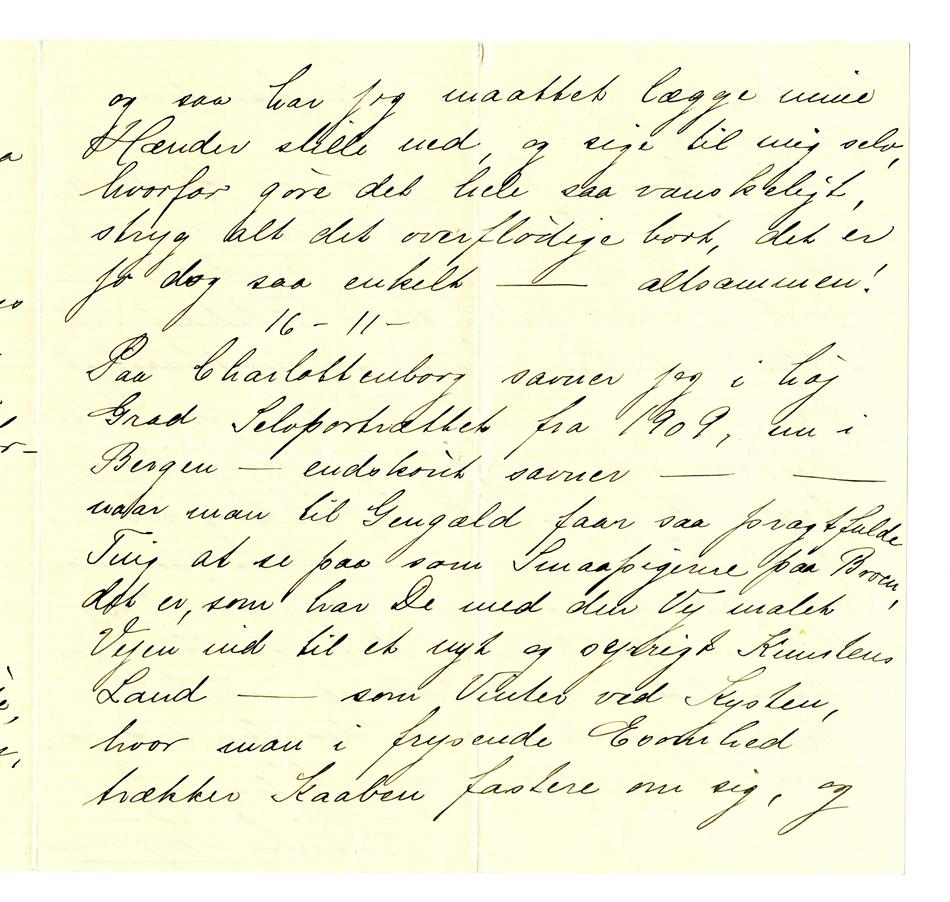 og saa har jeg maattet lægge mine
Hænder stille ned, og sige til mig selv,
hvorfor göre det hele saa vanskeligt,
stryg alt det overflödige bort, det er
jo dog saa enkelt — altsammen!
16 - 11 -
Paa Charlottenborg savner jeg i höj
Grad Selvportrættet fra 1909, nu i
Bergen — endskönt savner — —
naar man til Gengæld faar saa pragtfulde
Ting at se paa som Smaapigerne paa Broen,
det er, som har De med den Vej malet
Vejen ind til et nyt og Kunstens
Land — som Vinter ved Kysten,
hvor man i frysende Ensomhed
trækker Kaaben fastere om sig, og